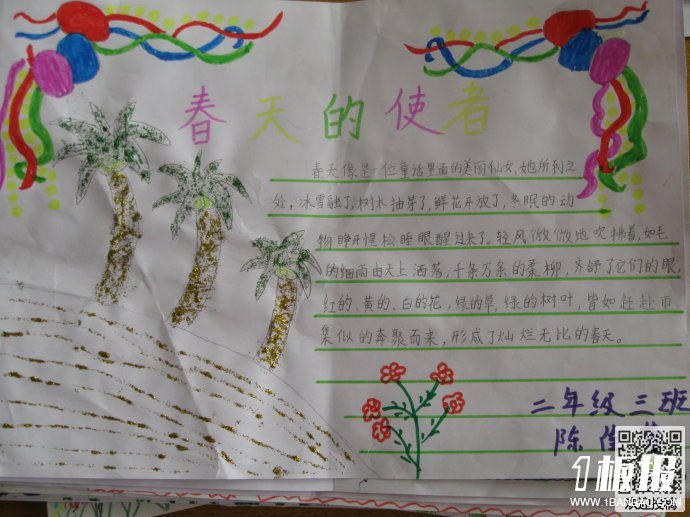 春天的使者
春天像是一位童话里面的美丽仙女,她所到之
处,冰雪融了,树木抽芽了,鲜花开放了,冬眠的动
物睁开惺松睡眼醒过来了。轻风微微地吹拂着,如毛
的细雨由天上洒落,千条万条的柔柳,齐舒了它们的眼,
红的、黄的、白的花,绿的草,绿的树叶,皆如赶赴市
集似的奔聚而来,形成了灿烂无比的春天。
二年级三班
陈
1板报
WWW.1BANBAO.COM